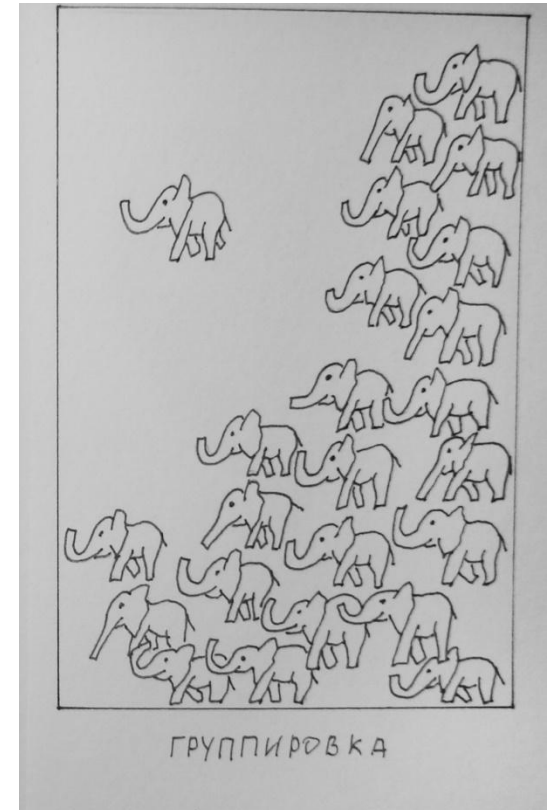 ГРУППИРОВКА